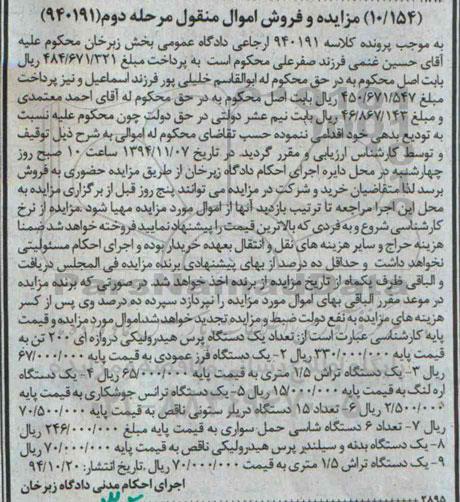 (۱۰/۱۵۴) مزایده و فروش اموال منقول مرحله دوم(۹۴۰۱۹۱)
به موجب پرونده کلاسه ۹۴۰۱۹۱ ارجاعی دادگاه عمومی بخش زبرخان محکوم علیه
آقای حسین غنمی فرزند صفرعلی محکوم است به پرداخت مبلغ ۴۸۴/۶۷۱/۳۲۱ ریال
بابت اصل محکوم به در حق محکوم له ابوالقاسم خلیلی پور فرزند اسماعیل و نیز پرداخت
مبلغ ۴۵۰/۶۷۱/۵۴۷ ریال بابت اصل محکوم به در حق محکوم له آقای احمد معتمدی
و مبلغ ۴۶/۸۶۷/۱۴۳ ریال بابت نیم عشر دولتی در حق دولت چون محکوم علیه نسبت
به تودیع بدهی خود اقدامی ننموده حسب تقاضای محکوم له اموالی به شرح ذیل توقیف
و توسط کارشناس ارزیابی و مقرر گردید. در تاریخ ۱۳۹۴/۱۱/۰۷ ساعت ۱۰ صبح روز
چهارشنبه در محل دایره اجرای احکام دادگاه زبرخان از طریق مزایده حضوری به فروش
برسد لذا متقاضیان خرید و شرکت در مزایده می توانند پنج روز قبل از برگزاری مزایده به
محل این اجرا مراجعه تا ترتیب بازدید آنها از اموال مورد مزایده مهیا شود .مزایده از نرخ
کارشناسی شروع و به فردی که بالاترین قیمت را پیشنهاد نمایید فروخته خواهد شد ضمنا
هزینه حراج و سایر هزینه های نقل و انتقال بعهده خریدار بوده و اجرای احکام مسئولیتی
نخواهد داشت و حداقل ده درصد از بهای پیشنهادی برنده مزایده فی المجلس دریافت
و الباقی ظرف یکماه از تاریخ مزایده از برنده اخذ خواهد شد. در صورتی که برنده مزایده
در موعد مقرر الباقی بهای اموال مورد مزایده را نپردازد سپرده ده درصد وی پس از کسر
هزینه های مزایده به نفع دولت ضبط و مزایده تجدید خواهد شد.اموال مورد مزایده و قیمت
پایه کارشناسی عبارت است از: تعداد یک دستگاه پرس هیدرولیکی دروازه ای ۲۰۰ تن به
قیمت پایه ۳۳۰/۰۰۰/۰۰۰ ریال ۲- یک دستگاه فرز عمودی به قیمت پایه ۶۷/۰۰۰/۰۰۰
ریال ۳- یک دستگاه تراش ۱/۵ متری به قیمت پایه ۶۵/۰۰۰/۰۰۰ ریال ۴- یک دستگاه
اره لنگ به قیمت پایه ۱۵/۰۰۰/۰۰۰ ریال ۵- یک دستگاه ترانس جوشکاری به قیمت پایه
۲/۵۰۰/۰۰۰ ریال ۶- تعداد ۱۵ دستگاه دریلر ستونی ناقص به قیمت پایه ۷۰/۵۰۰/۰۰۰
ریال ۷- تعداد ۶ دستگاه شاسی حمل سواری به قیمت پایه مبلغ ۲۴۶/۰۰۰/۰۰۰ ریال
۸- یک دستگاه بدنه و سیلندر پرس هیدرولیکی ناقص به قیمت پایه ۷۰/۰۰۰/۰۰۰ ریال
۹- یک دستگاه تراش ۱/۵ متری به قیمت ۷۰/۰۰۰/۰۰۰ ریال .تاریخ انتشار: ۹۴/۱۰/۲۰
اجرای احکام مدنی دادگاه زبرخان
۲۸۹۵